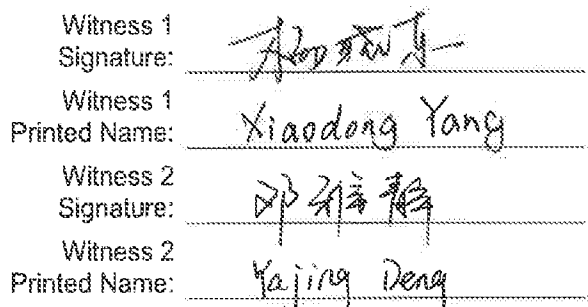 Witness 1
Signature:
Witness 1
Printed Name: Xiaodong Yang
Witness 2
Signature: 邓雅静
Witness 2
Printed Name: Yajing Deng